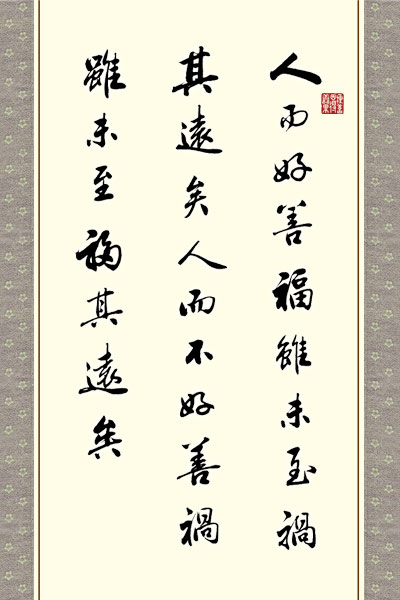 人而好善福雖未至禍
其遠矣人而不好善禍
雖未至福其遠矣